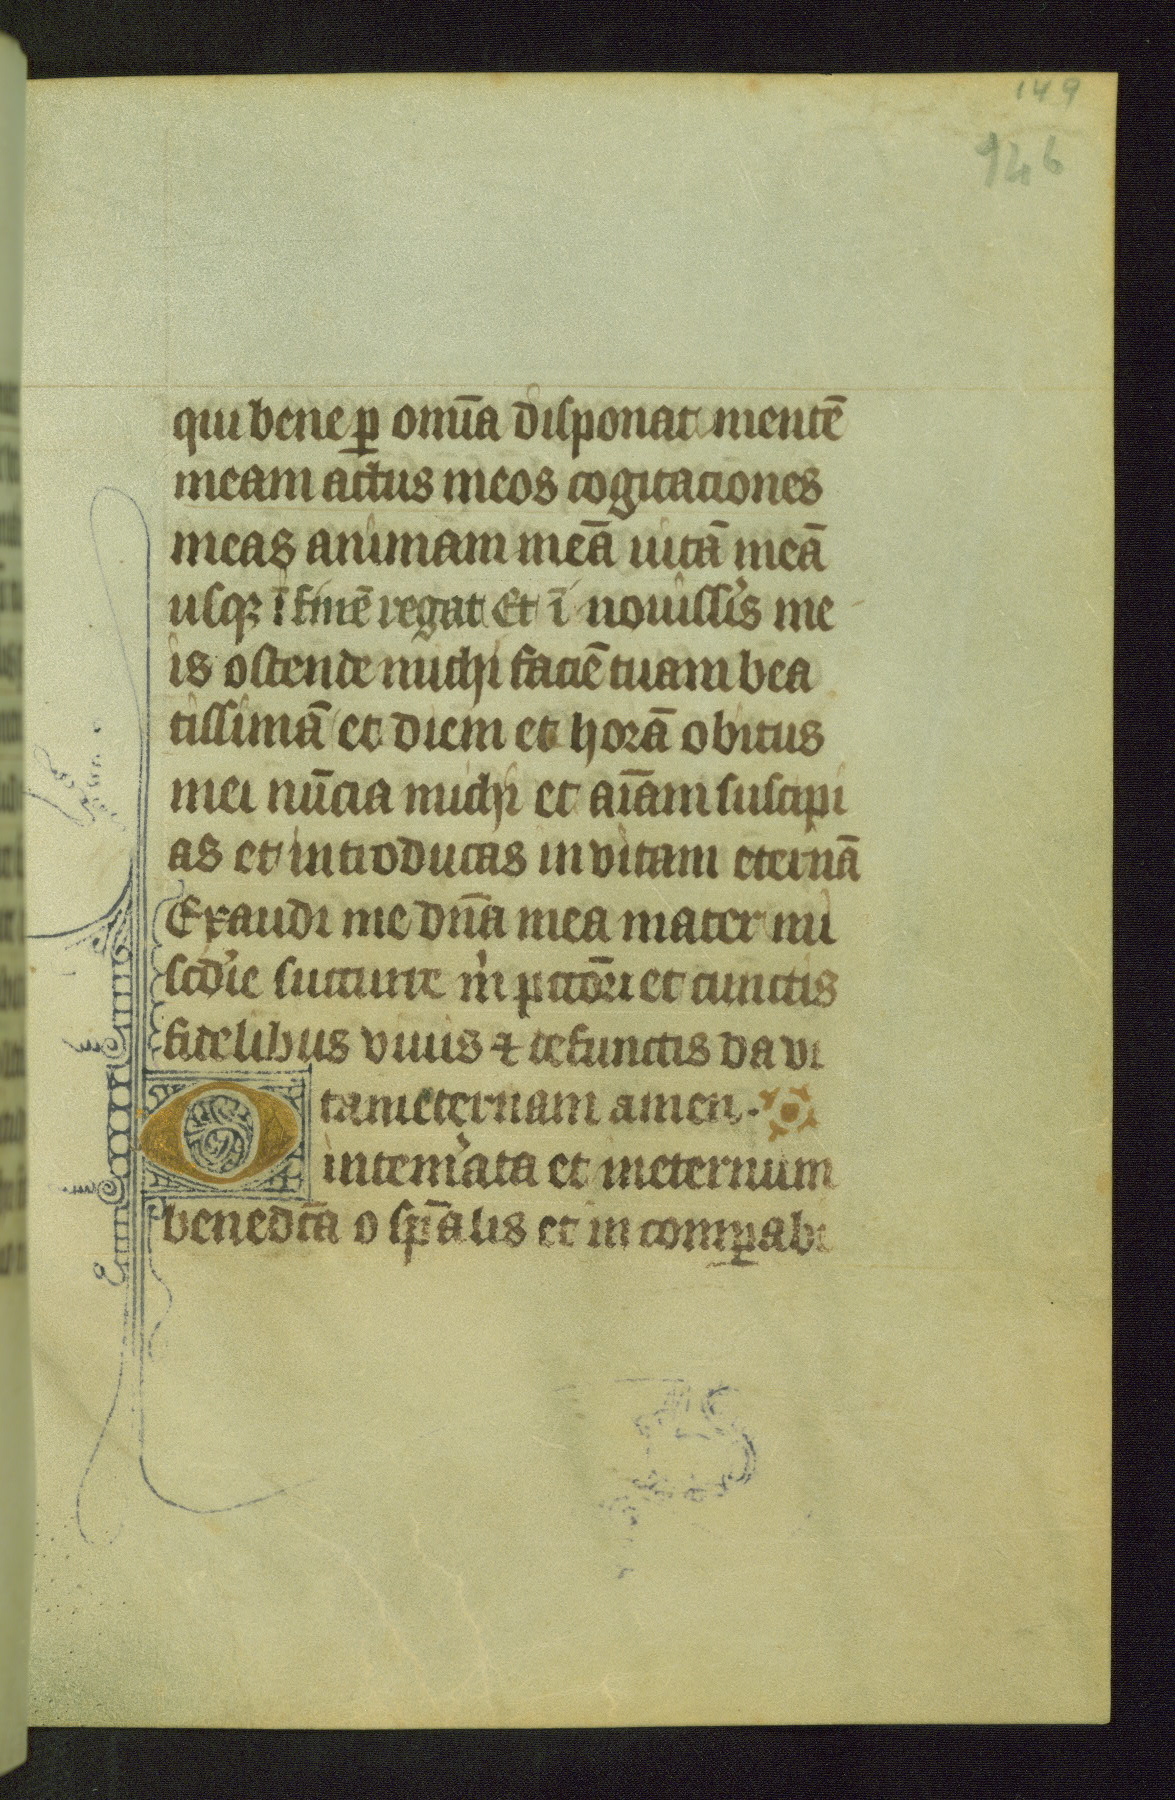 149
146
qui bene ꝑ omīa disponat mentē
meam actus meos cogitaciones
meas animam meā uitā meā
usqꝫ ī finē regat Et ī nouissis me
is ostende michi faciē tuam bea
tissimā et diem et horā obitus
mei nūcia michi et aīam suscipi
as et introducas in vitam eternā
Exaudi me dn̄a mea mater mi
scd'ie succurre m̍ pctōri et cunctis
fidelibus viuis ⁊ defunctis da vi
tam eternam amen.
O intem'ata et ineternum
benedcā o sp̄alis et incomꝑabi